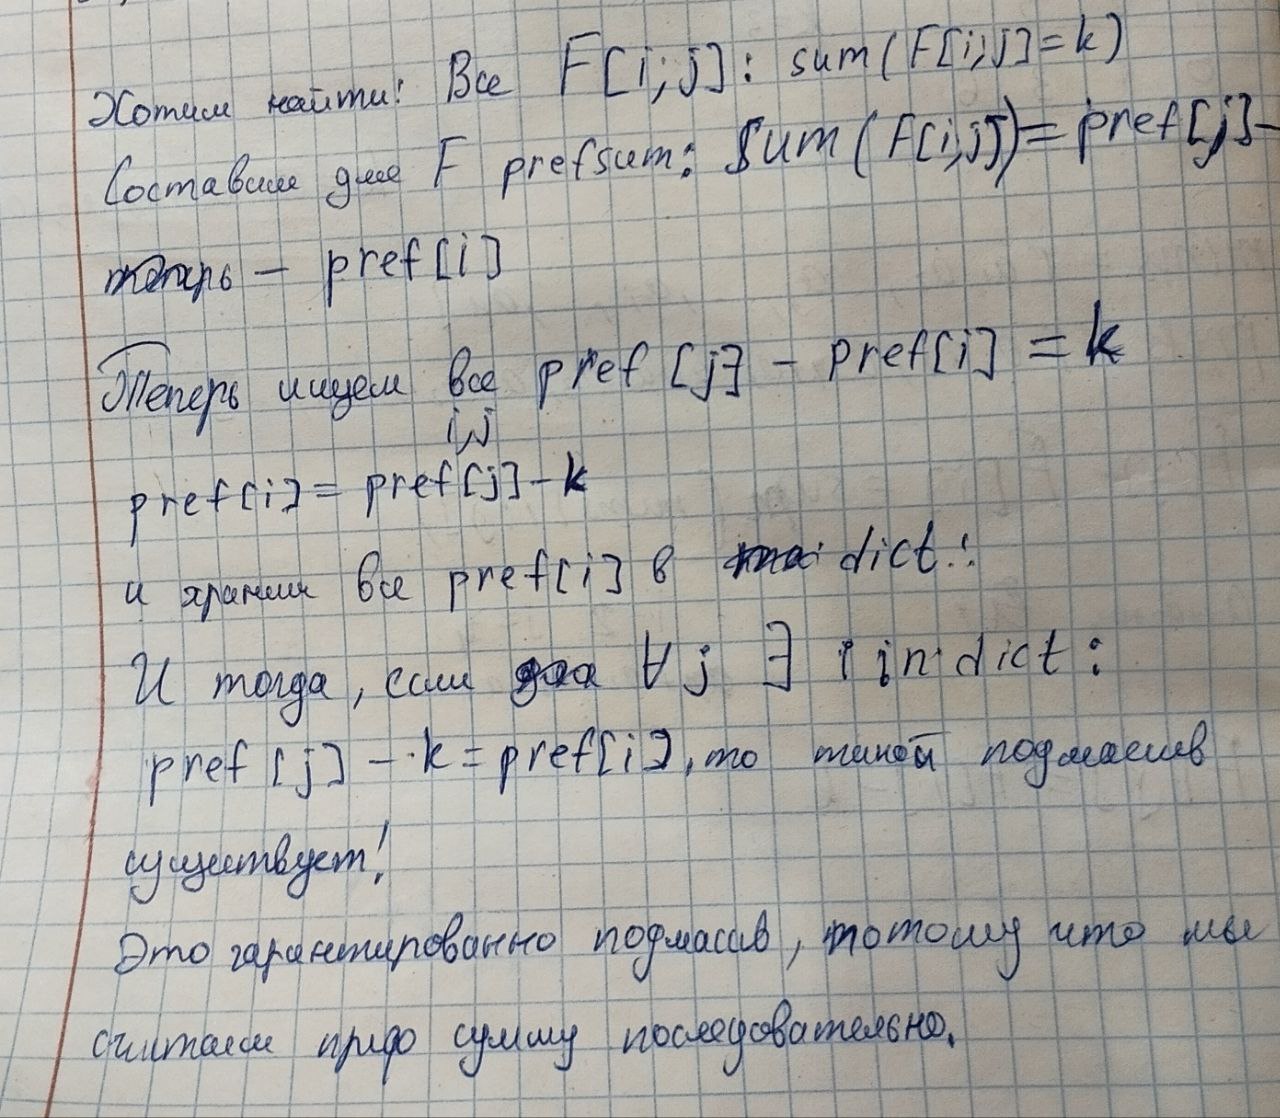 Хотим найти: Все F[i;j]: sum(F[i;j]=k)
Составим для F prefsum: Sum(F[i;j])= pref[j]-
- pref[i]
Теперь ищем все pref [j] - pref[i] = k
i,j
pref[i]= pref[j]-k
и храним все pref[i] в dict:
И тогда, если ∀ j ∃ i in dict:
pref [j] - k = pref[i], то такой подмассив
существует!
Это гарантированно подмассив, потому что мы
считаем преф сумму последовательно.